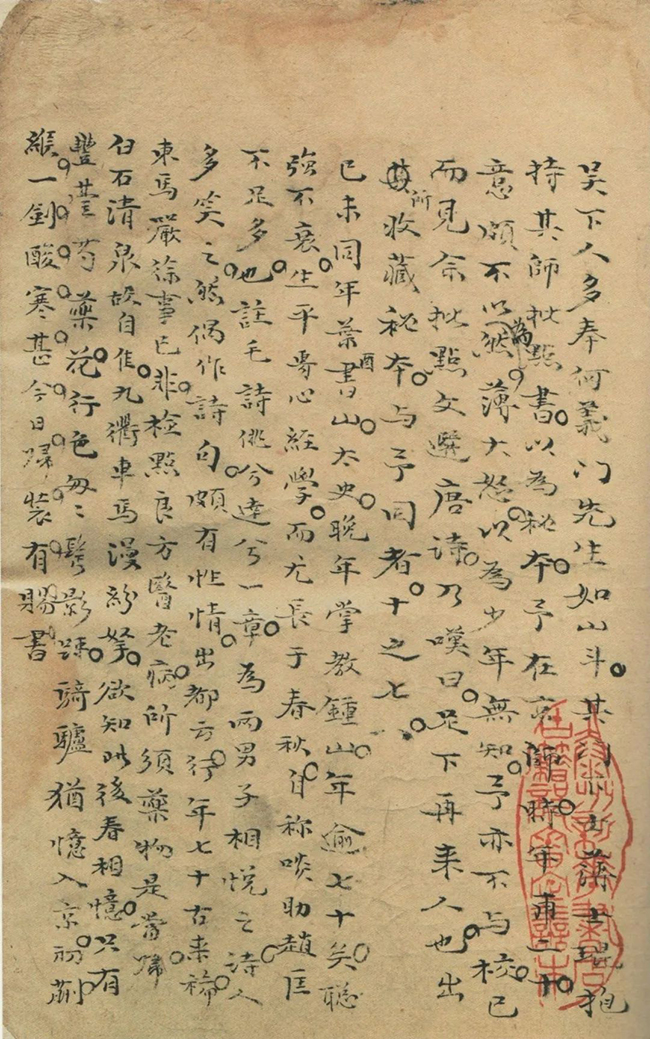 吳下人多奉何義門先生如山斗。其門
持其師批點書。以為秘本。予在京師時。年甫二十。
意頗不以為然。薄大怒。以為少年無知。予亦不与校。已
而見余批點文選唐詩。乃嘆曰。足下再来人也。出
其所收藏秘本。与予同者。十之七八。
己未同年葉書山太史。晚年掌教鍾山。年逾七十矣。聡
強不衰。生平專心經學。而尤長于春秋。自称啖助趙匡
不足多也。註毛詩佻兮達兮一章。為兩男子相悅之詩。人
多笑之。然偶作詩句。頗有性情。出都云。行年七十古来稀。
東馬嚴徐事已非。檢點良方醫老病。所須藥物是當歸。
白石清泉故自佳。九衢車馬漫紛拏。欲知此後春相憶。只有
豐臺芍藥花。行色匆匆鬂影疎。騎驢猶憶入京初。蒯
緱一劍酸寒甚。今日歸裝有賜書